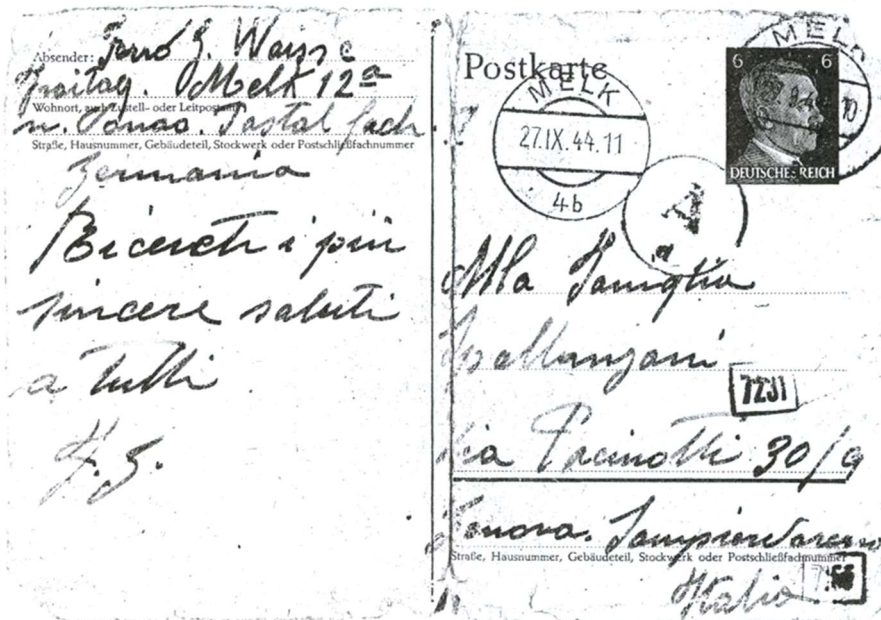 Absender: Ferró G. Waisse
Freitag. Melk 12ª
Wohnort, auch Zustell- oder Leitpostamt
Donao. Postal fach
Straße, Hausnummer, Gebäudeteil, Stockwerk oder Postschließfachnummer
Germania
i più
sincere saluti
a tutti
Postkarte
MELK
27.IX.44.11
4b
A
MELK
6 6
10
DEUTSCHES REICH
Alla Famiglia
Spallanzani
7231
Via Pacinotti 30/9
Genova. Sampierdarena
Straße, Hausnummer, Gebäudeteil, Stockwerk oder Postschließfachnummer
Italia